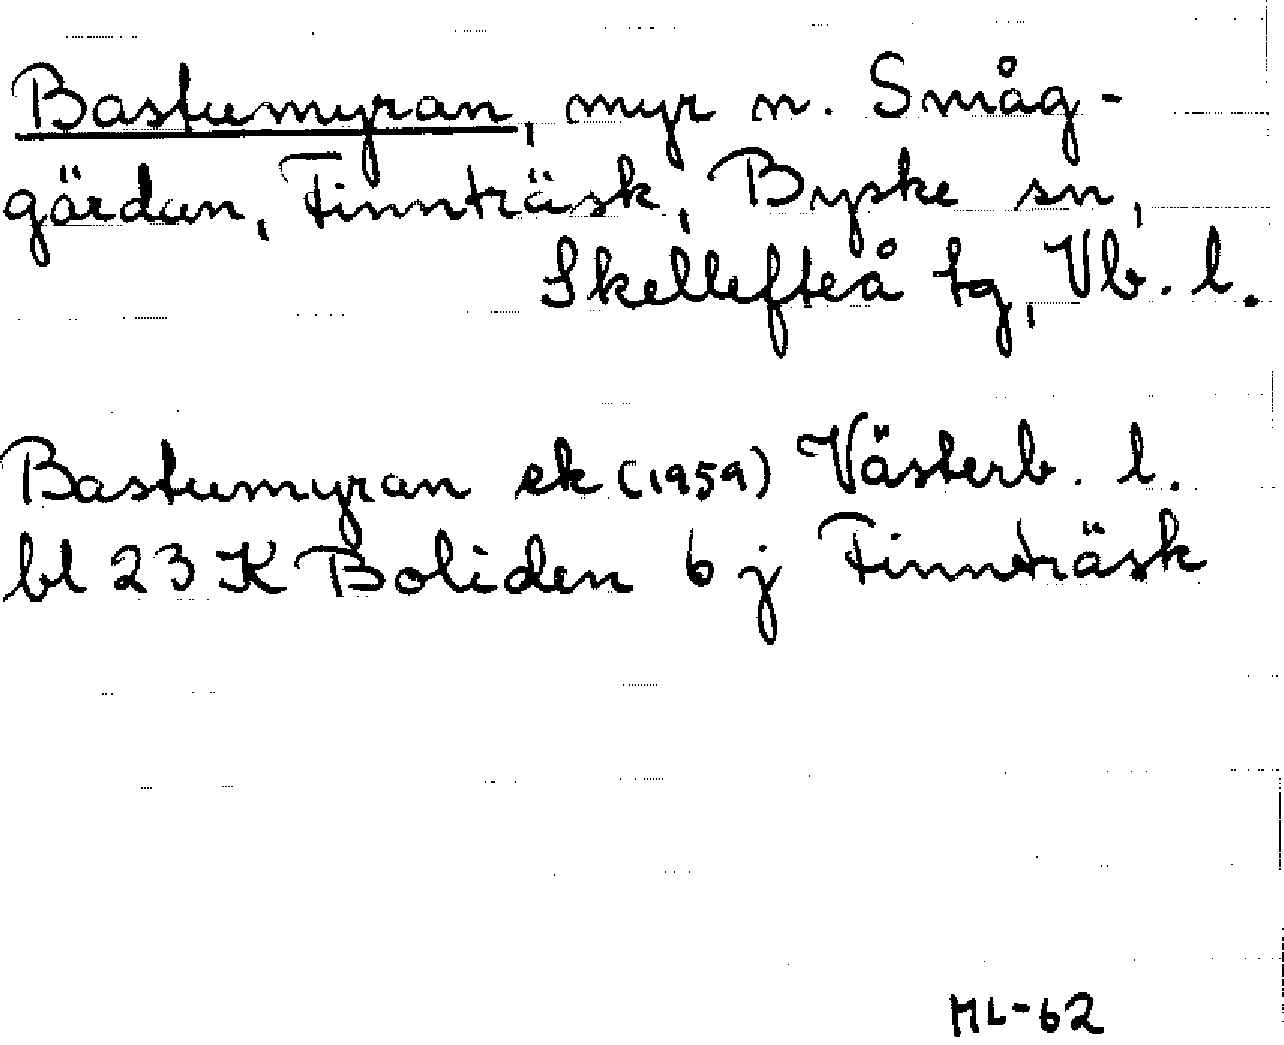 Bastumyran, myr n. Småg-
gärdan, Finnträsk, Byske sn,
Skellefteå tg, Vb. l.
Bastumyran ek (1959) Västerb. l.
bl 23 K Boliden 6 j Finnträsk
ML-62